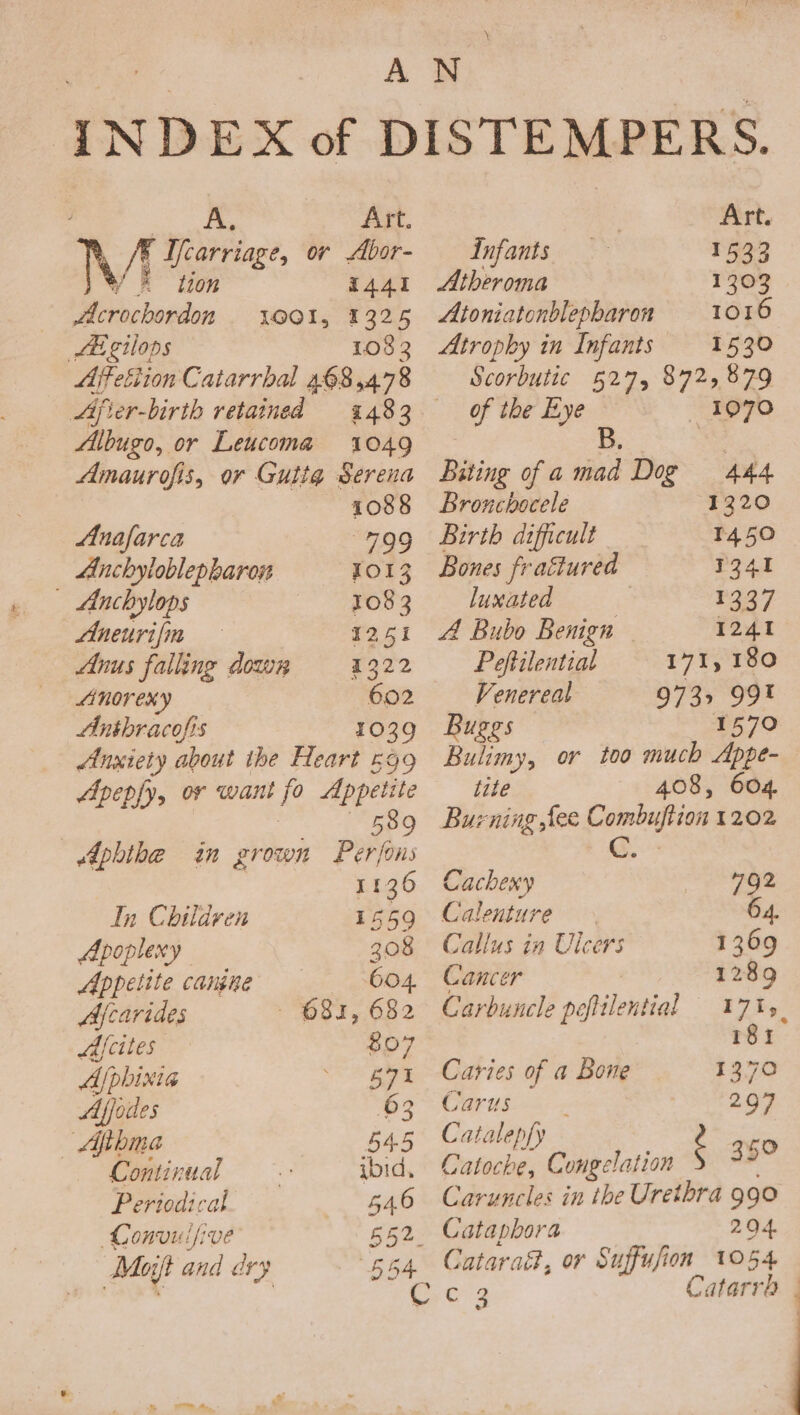 A N
INDEX of DISTEMPERS.
A. Art.
MIſcarriage, or Abor-
tion 1441
Acrochordon 1001, 1325
Ægilops 1083
Affection Catarrhal 468,478
After-birth retained 1483
Albugo, or Leucoma 1049
Amauroſis, or Gutta Serena
1088
Anaſarca 799
Anchyloblepharon 1013
Anchylops 1083
Aneuriſm 1251
Anus falling down 1322
Anorexy 602
Anthracoſis 1039
Anxiety about the Heart 599
Apepſy, or want fo Appetite
589
Aphthæ in grown Perſons
1136
In Children 1559
Apoplexy 308
Appetite canine 604
Aſcarides 681, 682
Aſcites 807
Aſphixia 571
Aſſodes 63
Aſthma 545
Continual ibid.
Periodical 546
Convulſive 552
Moiſt and dry 554
Art.
Infants 1533
Atheroma 1303
Atoniatonblepharon 1016
Atrophy in Infants 1530
Scorbutic 527, 872, 879
of the Eye 1070
B.
Biting of a mad Dog 444
Bronchocele 1320
Birth difficult 1450
Bones fractured 1341
luxated 1337
A Bubo Benign 1241
Peſtilential 171, 180
Venereal 973, 991
Buggs 1570
Bulimy, or too much Appe-
tite 408, 604
Burning, ſee Combuſtion 1202
C.
Cachexy 792
Calenture 64
Callus in Ulcers 1369
Cancer 1289
Carbuncle peſtilential 171,
181
Caries of a Bone 1370
Carus 297
Catalepſy
Catoche, Congelation } 350
Caruncles in the Urethra 990
Cataphora 294
Cataract, or Suffuſion 1054
C c 3 Catarrh